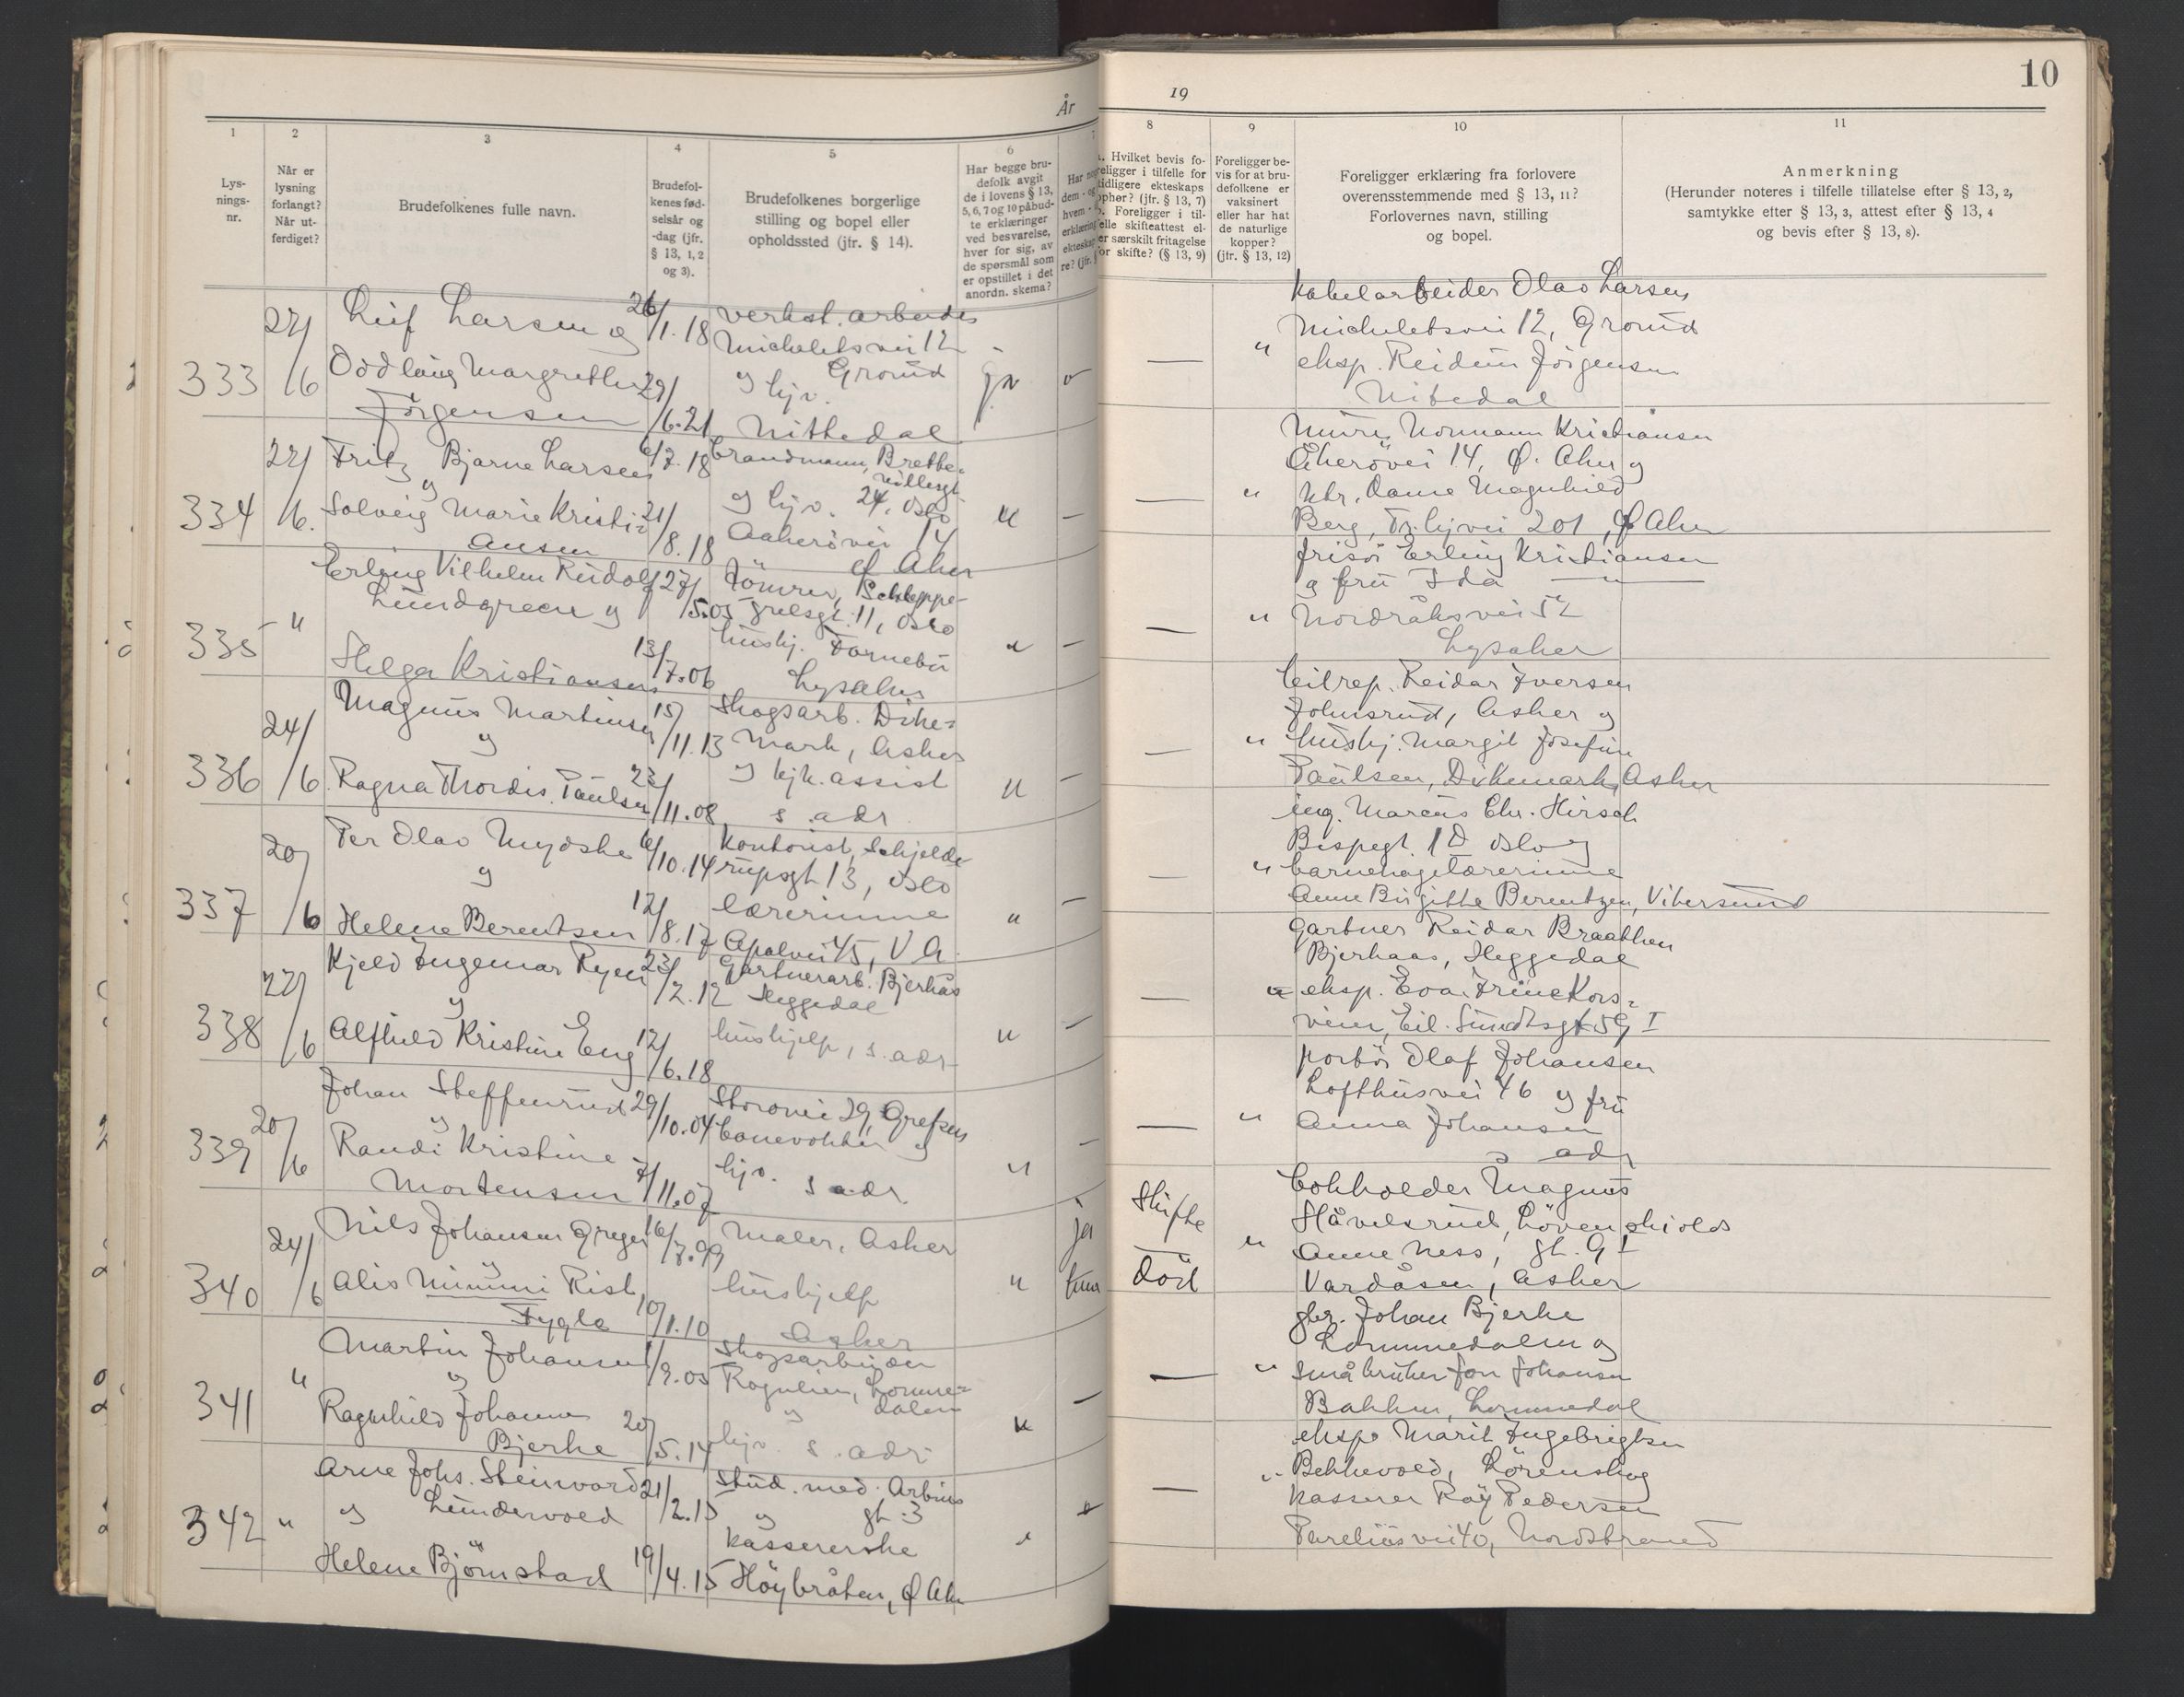 År 19
10
1
2
3
4
5
6
8
9
10
11
Lys-
nings-
nr.
Når er
lysning
forlangt?
Når ut-
ferdiget?
Brudefolkenes fulle navn.
Brudefol-
kenes fød-
selsår og
-dag (jfr.
§ 13, 1, 2
og 3).
Brudefolkenes borgerlige
stilling og bopel eller
opholdssted (jfr. § 14).
Har begge bru-
defolk avgit
de i lovens § 13,
5, 6, 7 og 10 påbud-
te erklæringer
ved besvarelse,
hver for sig, av
de spørsmål som
er opstillet i det
anordn. skema?
Hvilket bevis fo-
religger i tilfelle for
tidligere ekteskaps
ophør? (jfr. § 13, 7)
Foreligger i til-
felle skifteattest el-
er særskilt fritagelse
or skifte? (§ 13, 9)
Foreligger be-
vis for at bru-
defolkene er
vaksinert
eller har hat
de naturlige
kopper?
(jfr. § 13, 12)
Foreligger erklæring fra forlovere
overensstemmende med § 13, 11?
Forlovernes navn, stilling
og bopel.
Anmerkning
(Herunder noteres i tilfelle tillatelse efter § 13, 2,
samtykke efter § 13, 3, attest efter § 13, 4
og bevis efter § 13, 8).
333
22/
/6
Leif Larsen og
26/1.18
verkst. arbeider
Micheletsvei 12
Grorud
Oddlaug Margrethe
Jörgensen
29/6.21
og hjv.
Nittedal
Kabelarbeider Olav Larsen
Micheletsvei 12, Grorud
" eksp. Reidun Jörgensen
Nitedal
334
22/
/6.
Fritz Bjarne Larsen
og
6/7.18
brandmann, Bretteville
24, Oslo
Solveig Marie Kristi=
ansen
21/8.18
og hjv.
Aakerövei 14
Ø Aker
"
Murer Normann Kristiansen
Åkerövei 14, Ø. Aker og
" ktr. dame Magnhild
Berg, Tr.hjvei 201, Ø Aker
335
"
Erling Vilhelm Rudolf
Lundgreen og
27/5.05
Tömrer, Schleppe-
grelsgt. 11, Oslo
Helga Kristiansen
13/7.06
hushj. Fornebu
Lysaker
"
frisör Erling Kristiansen
og fru Ida — " —
" Nordråksvei 52
Lysaker
336
24/
/6
Magnus Martinsen
og
15/11.13
Skogsarb. Dike=
mark, Asker
Ragna Thordis Paulsen
23/11.08
og kjk. assist
s. adr
"
bilrep. Reidar Iversen
Johnsrud, Asker og
" hushj. Margit Josefine
Paulsen, Dikemark, Asker
337
20/
/6
Per Olav Mydske
og
6/10.14
Kontorist, Schjelde-
rupsgt 13, Oslo
Helene Berentsen
12/8.17
lærerinne
Apalvei 45, V A.
"
ing. Marcus Chr. Hirsch
Bispegt. 1 D Oslo og
" barnehagelærerinne
Anne Birgitte Berentzen, Vikersund
338
22/
/6
Kjeld Ingemar Ryen
og
23/2.12
Gartnerarb. Bjerkås
Heggedal
Alfhild Kristine Eng
12/6.18
hushjelp, s. adr.
"
Gartner Reidar Braathen
Bjerkaas, Heggedal
" eksp. Eva Irene Kors=
vien, Eil. Sundtsgt 59 I
339
20/
/6
Johan Steffenrud
og
29/10.04
Storovei 29, Grefsen
banevokter og
Randi Kristine
Mortensen
7/11.07
hjv. s adr.
"
portör Olaf Johansen
Lofthusvei 46 og fru
" Anna Johansen
s adr
340
24/
/6
Nils Johansen Greger
og
16/7.99
Maler, Asker
Alis Mimmi Rist
Fygle
10/1.10
hushjelp
Asker
"
ja
Skifte
Död
Bokholder Magnus
Håvelsrud, Lövenskiolds
" Anne Ness, gt. 9 I
Vardåsen, Asker
341
"
Martin Johansen
og
1/9.05
Skogsarbeider
Rognlien, Lomme=
dalen
Ragnhild Johanne
Bjerke
20/5.14
og
hjv. s. adr.
"
gbr. Johan Bjerke
Lommedalen og
" Småbruker Jon Johansen
Bakken, Lommedal
342
"
Arne Johs. Steinvord
og Lundervold
21/2.13
stud. med. Arbins
og gt. 3
Helene Björnstad
19/4.15
kassererske
Höybråten, Ø Aker
eksp. Marit Ingebrigtsen
" Bekkevold, Lörenskog
kasserer Roy Pedersen
Pareliusvei 40, Nordstrand